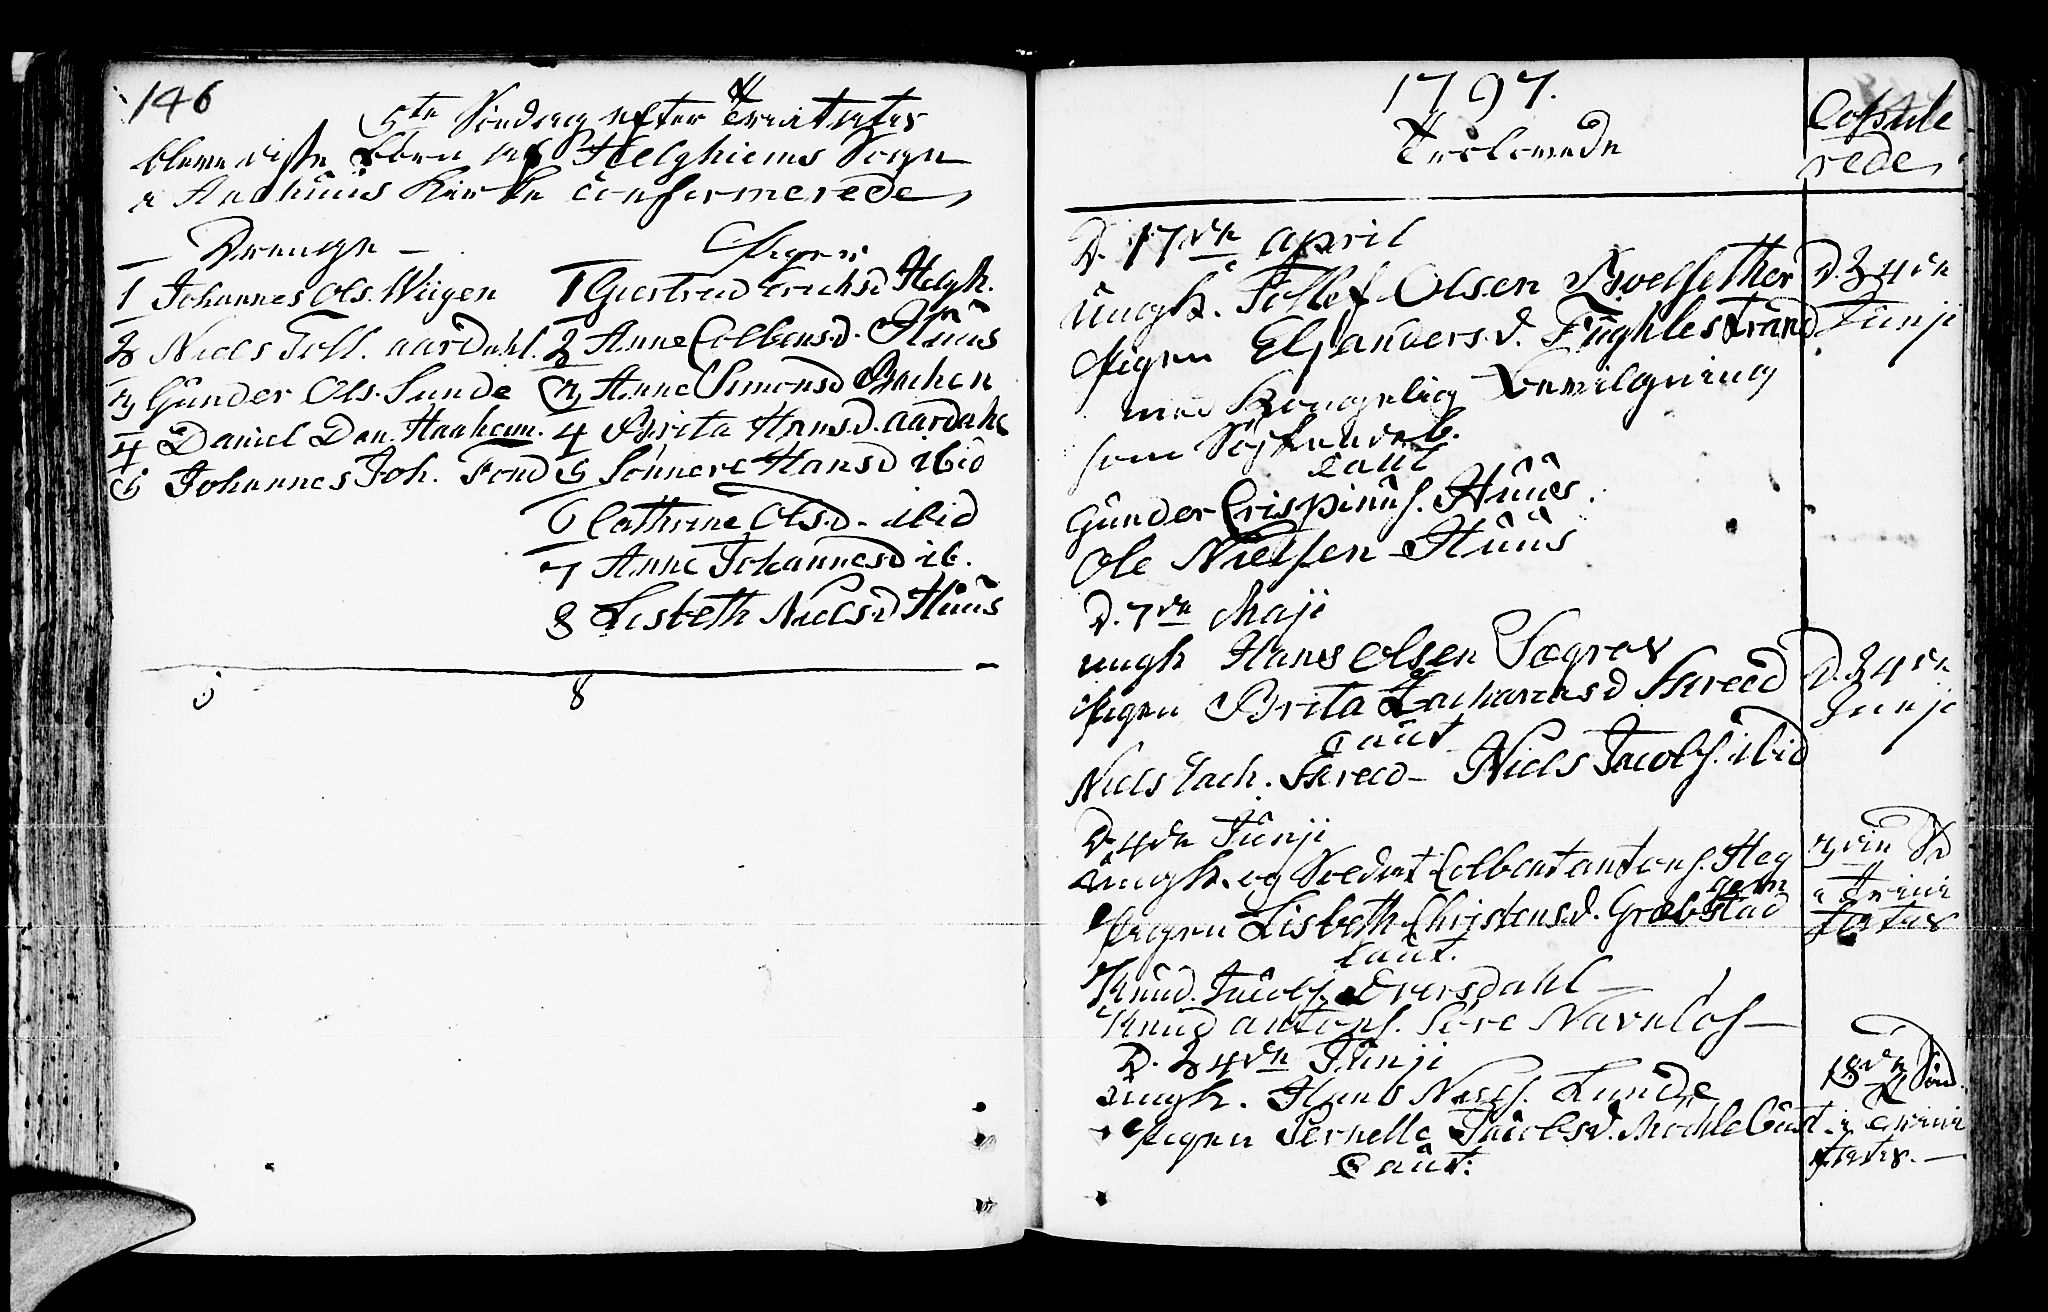 146
5te Søndag efter Trinitatis
bleve disse Børn af Helghiems Sogn
i Aalhuus Kirke confirmerede,
— Drenge —
1 Johannes Ols. Wiigen
2 Niels Toll. aardahl.
3 Gunder Ols. Sunde
4 Daniel Dan. Haaheim.
5 Johannes Joh. Fond
Piger
1 Giertrud Erichsd Helgh.
2 Anne Colbensd. Huus
3 Anne Simonsd Bachen
4 Brita Hansd. aardahl
5 Sønneve Hansd ibid
6 Cathrine Olsd. ibid
7 Anne Johannesd ib.
8 Lisbeth Nielsd Huus
5 8
1797.
Trolovede
Copule
rede,
D. 17de april
ungk. Tollef Olsen Kvelsether
Pigen Els andersd. Fughlestrand
med Kongelig Bevilgning
som Søskendeb.
Caut
Gunder Crispinus. Huus.
Ole Nielsen Huus
D. 24de
Junji
D. 7de Maji
ungk Hans Olsen Søgnes
Pigen Brita Zachariasd Skreed
Caut
Niels Zach. Skreed – Niels Jacobs. ibid
D. 24de
Junji
D. 4de Junji
ungk. og Soldat Colbent antons. Heg
gem
Pigen Lisbeth Christensd. Grøbstad
Caut.
Knud Jacobs. Eversdahl —
Knud antons. Søre Navnløs —
3die Sd
a Trini
tatis
D. 24de Junji
ungk. Hans Niels. Lunde
Pigen Pernelle Jacobsd. Møchlebust
Caut:
18de Sønd.
a Trini
tatis. —